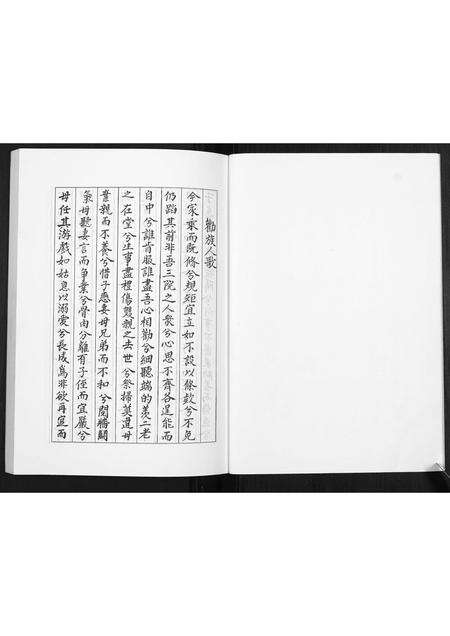 勸族人歌
今家乘而既脩兮規矩宜立如不設以條欵兮不免
仍蹈其前非吾三院之人衆兮心思不齊各逞能而
自中兮誰肯服誰盡吾心相勸兮細聽端的羨二老
之在堂兮生事盡禮傷雙親之去世兮祭掃莫違母
養親而不養兮惜子愿妻母兄弟而不和兮鬩牆鬪
氣毋聽妻言而爭業兮骨肉分離有子侄而宜嚴兮
毋任其游戲如姑息以溺愛兮長成爲非欲再宜而